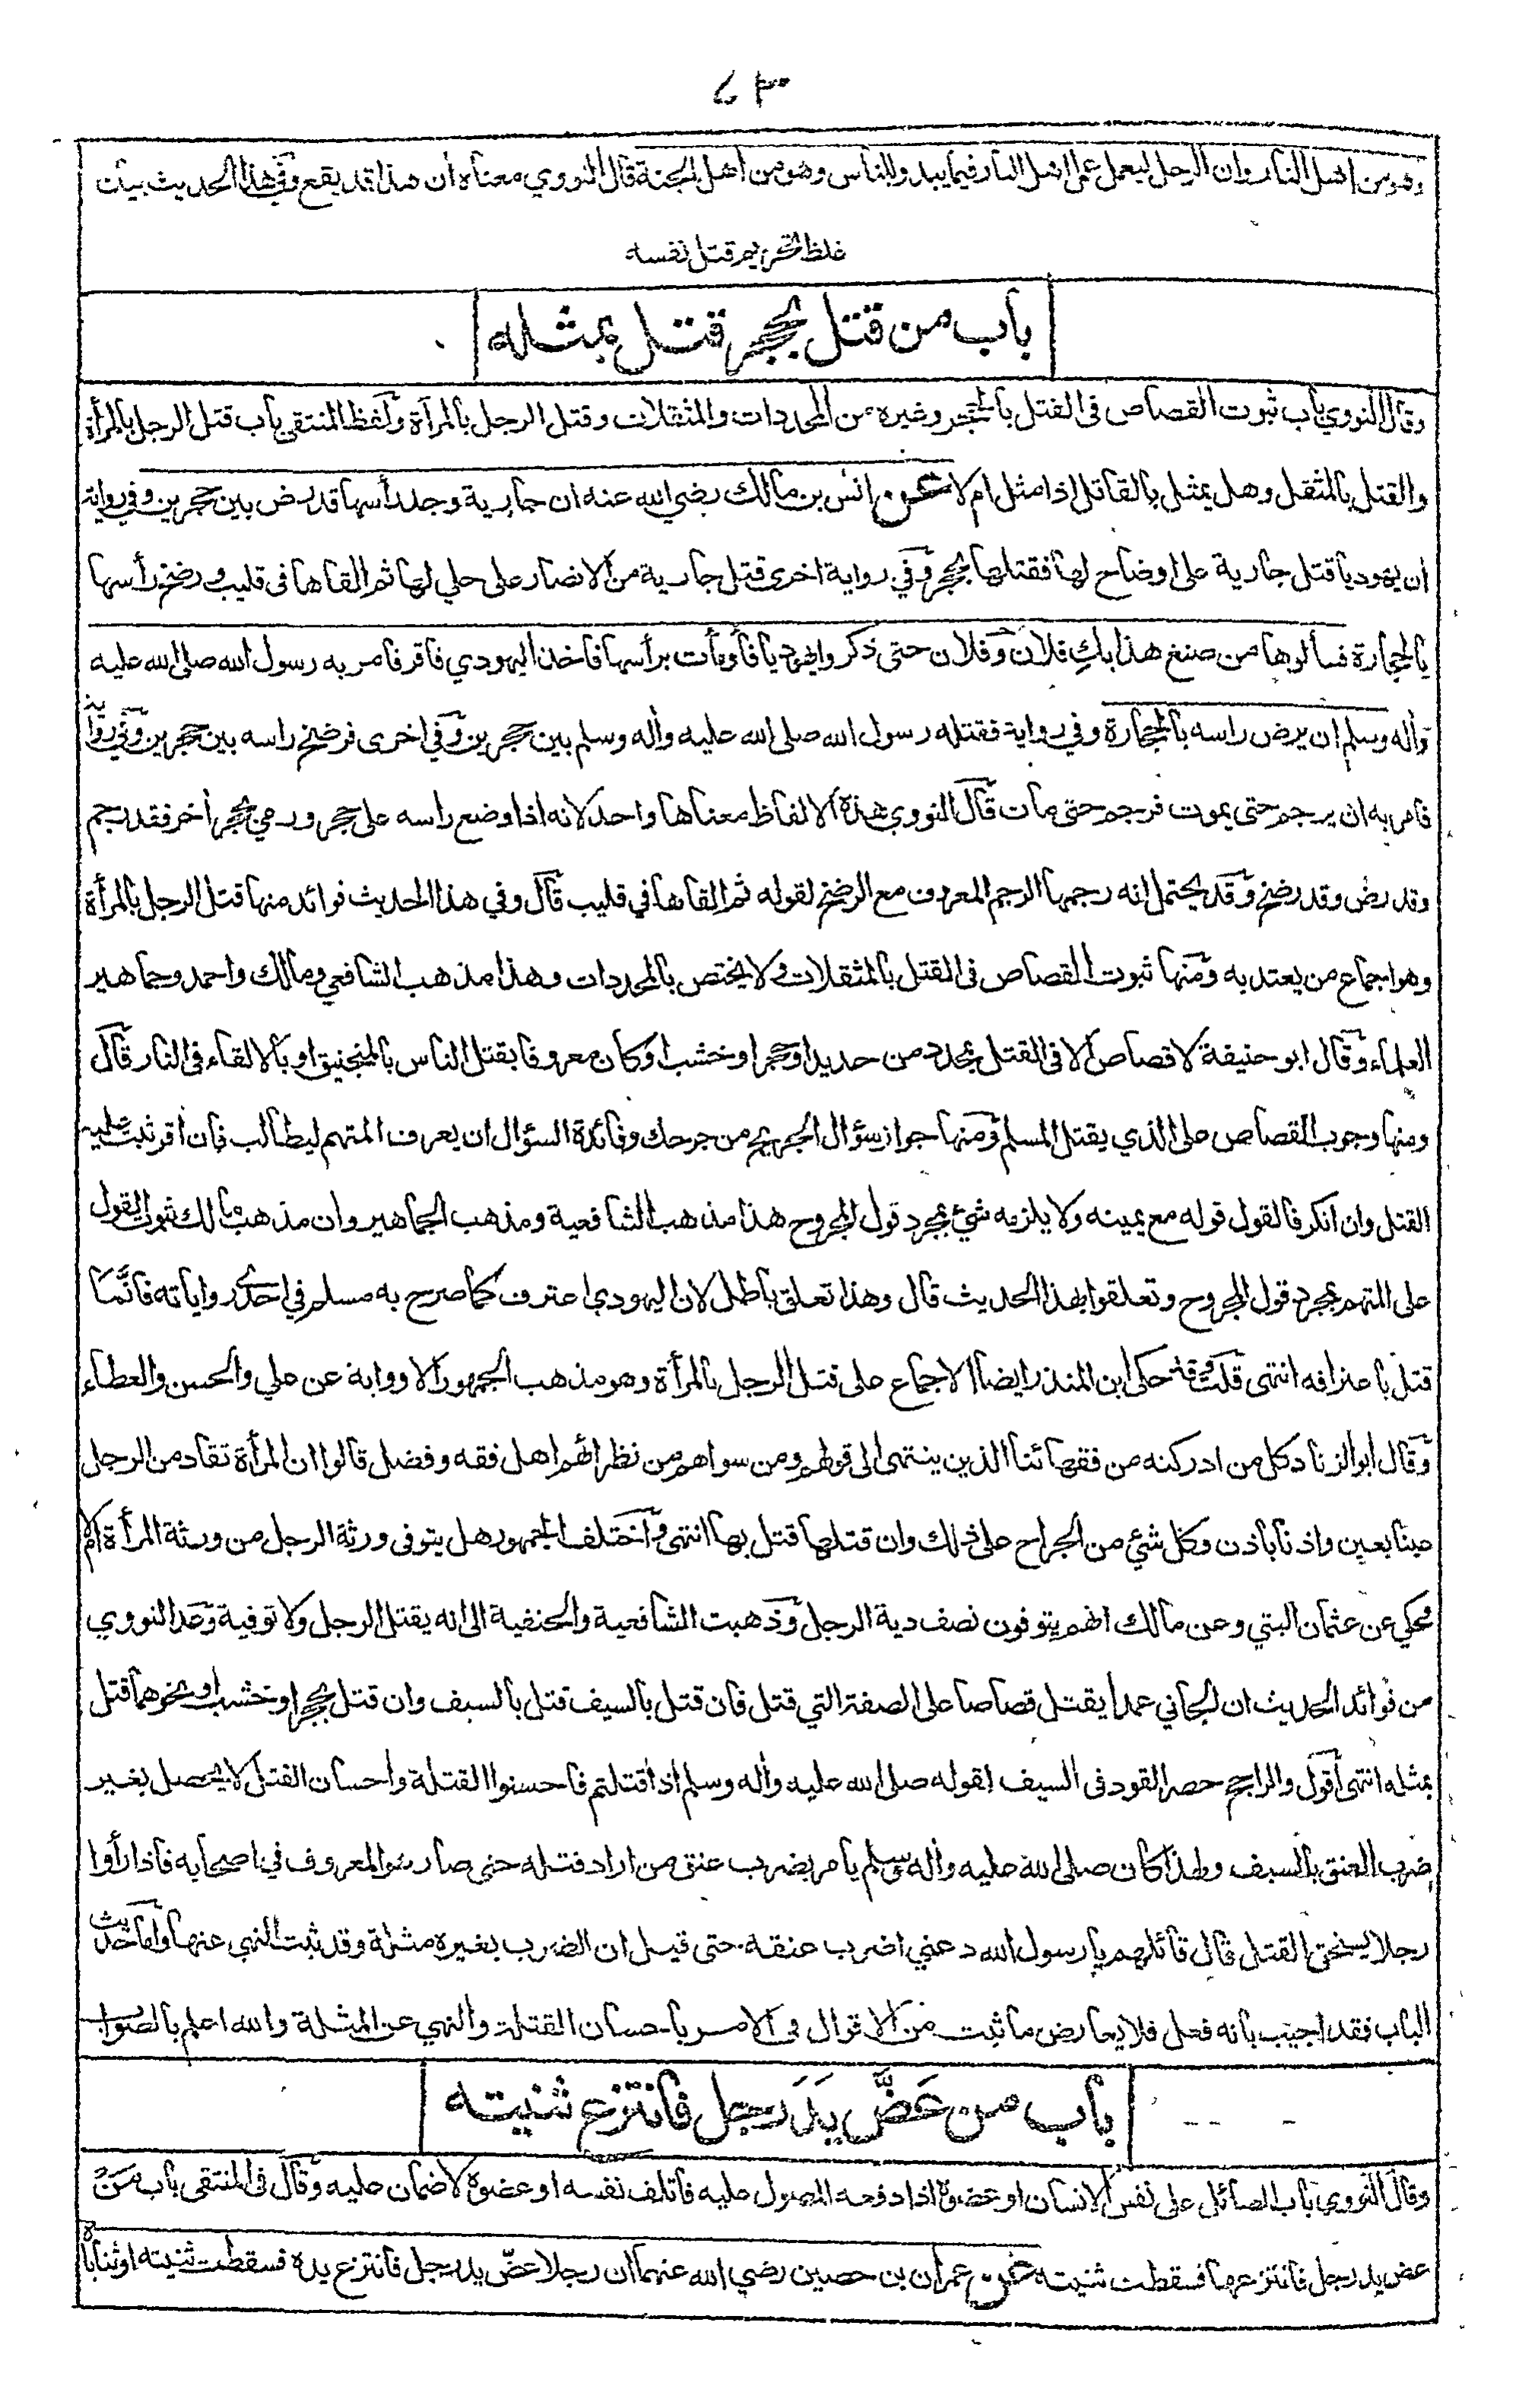 ٤٣
وهو من اهل النار وان الرجل ليعمل عمل اهل النار فيما يبدو للناس وهو من اهل الجنة قال النووي معناه ان هذا قد يقع وفي هذا الحديث بيان
غلظ تحريم قتل نفسه
باب من قتل بحجر قتل بمثله
وقال النووي باب ثبوت القصاص فى القتل بالحجر وغيره من المحددات والمثقلات وقتل الرجل بالمرأة ولفظ المنتقى باب قتل الرجل بالمرأة
والقتل بالمثقل وهل يمثل بالقاتل اذا مثل ام لا عن انس بن مالك رضي الله عنه ان جارية وجد رأسها قد رض بين حجرين وفي رواية
ان يهوديا قتل جارية على اوضاح لها فقتلها بحجر وفي رواية اخرى قتل جارية من الانصار على حلي لها ثم القاها فى قليب ورضخ رأسها
بالحجارة فسألوها من صنع هذا بكِ فلان وفلان حتى ذكروا يهوديا فأومأت برأسها فاخذ اليهودي فاقر فامر به رسول الله صلى الله عليه
وأله وسلم ان يرض راسه بالحجارة وفي رواية فقتله رسول الله صلى الله عليه وأله وسلم بين حجرين وفي اخرى فرضخ راسه بين حجرين وفي رواية
فامر به ان يرجم حتى يموت فرجم حتى مات قال النووي هذه الالفاظ معناها واحد لانه اذا وضع راسه على حجر ورمي بحجر أخر فقد رجم
وقد رض وقد رضخ وقد يحتمل انه رجمها الرجم المعروف مع الرضخ لقوله ثم القاها في قليب قال وفي هذا الحديث فوائد منها قتل الرجل بالمرأة
وهو اجماع من يعتد به ومنها ثبوت القصاص فى القتل بالمثقلات ولا يختص بالمحددات وهذا مذهب الشافعي ومالك واحمد وجماهير
العلماء وقال ابو حنيفة لا قصاص الا فى القتل بمحدد من حديد او حجر او خشب او كان معروفا بقتل الناس بالمنجنيق او بالالقاء فى النار قال
ومنها وجوب القصاص على الذي يقتل المسلم ومنها جواز سؤال الجريح من جرحك وفائدة السؤال ان يعرف المتهم ليطالب فان اقر ثبت عليه
القتل وان انكر فالقول قوله مع يمينه ولا يلزمه شئ بمجرد قول المجروح هذا مذهب الشافعية ومذهب الجماهير وان مذهب مالك ثبوت القول
على المتهم بمجرد قول المجروح وتعلقوا بهذا الحديث قال وهذا تعلق باطل لان اليهودي اعترف كما صرح به مسلم في احدى رواياته فانَّما
قتل باعترافه انتهى قلت وقد حكى ابن المنذر ايضا الاجماع على قتل الرجل بالمرأة وهو مذهب الجمهور الا رواية عن علي والحسن والعطاء
وقال ابو الزناد كل من ادركته من فقهائنا الذين ينتهى الى قولهم ومن سواهم من نظرائهم اهل فقه وفضل قالوا ان المرأة تقاد من الرجل
عينا بعين واذنا باذن وكل شئ من الجراح على ذلك وان قتلها قتل بها انتهى واختلف الجمهور هل يتوفى ورثة الرجل من ورثة المرأة ام لا
فحكي عن عثمان البتي وعن مالك انهم يتوفون نصف دية الرجل وذهبت الشافعية والحنفية الى انه يقتل الرجل ولا توفية وعد النووي
من فوائد الحديث ان الجاني عمدا يقتل قصاصا على الصفة التي قتل فان قتل بالسيف قتل بالسيف وان قتل بحجر او خشب او نحوهما قتل
بمثله انتهى اقول والراجح حصر القود فى السيف لقوله صلى الله عليه وأله وسلم اذا قتلتم فاحسنوا القتلة واحسان القتل لا يحصل بغير
ضرب العنق بالسيف ولهذا كان صلى الله عليه وأله وسلم يامر بضرب عنق من اراد قتله حتى صار هو المعروف في اصحابه فاذا رأوا
رجلا يستحق القتل قال قائلهم يا رسول الله دعني اضرب عنقه حتى قيل ان الضرب بغيره مثلة وقد ثبت النهي عنها واما حديث
الباب فقد اجيب بانه فعل فلا يعارض ما ثبت من الاقوال فى الامر باحسان القتلة والنهي عن المثلة والله اعلم بالصواب
باب من عَضَّ يَدَ رجل فانتزع ثنيته
وقال النووي باب الصائل على نفس الانسان او عضوه اذا دفعه المصول عليه فاتلف نفسه او عضوه لا ضمان عليه وقال فى المنتقى باب من
عض يد رجل فانتزعها فسقطت ثنيته عن عمران بن حصين رضي الله عنهما ان رجلا عضّ يد رجل فانتزع يده فسقطت ثنيته او ثناياه